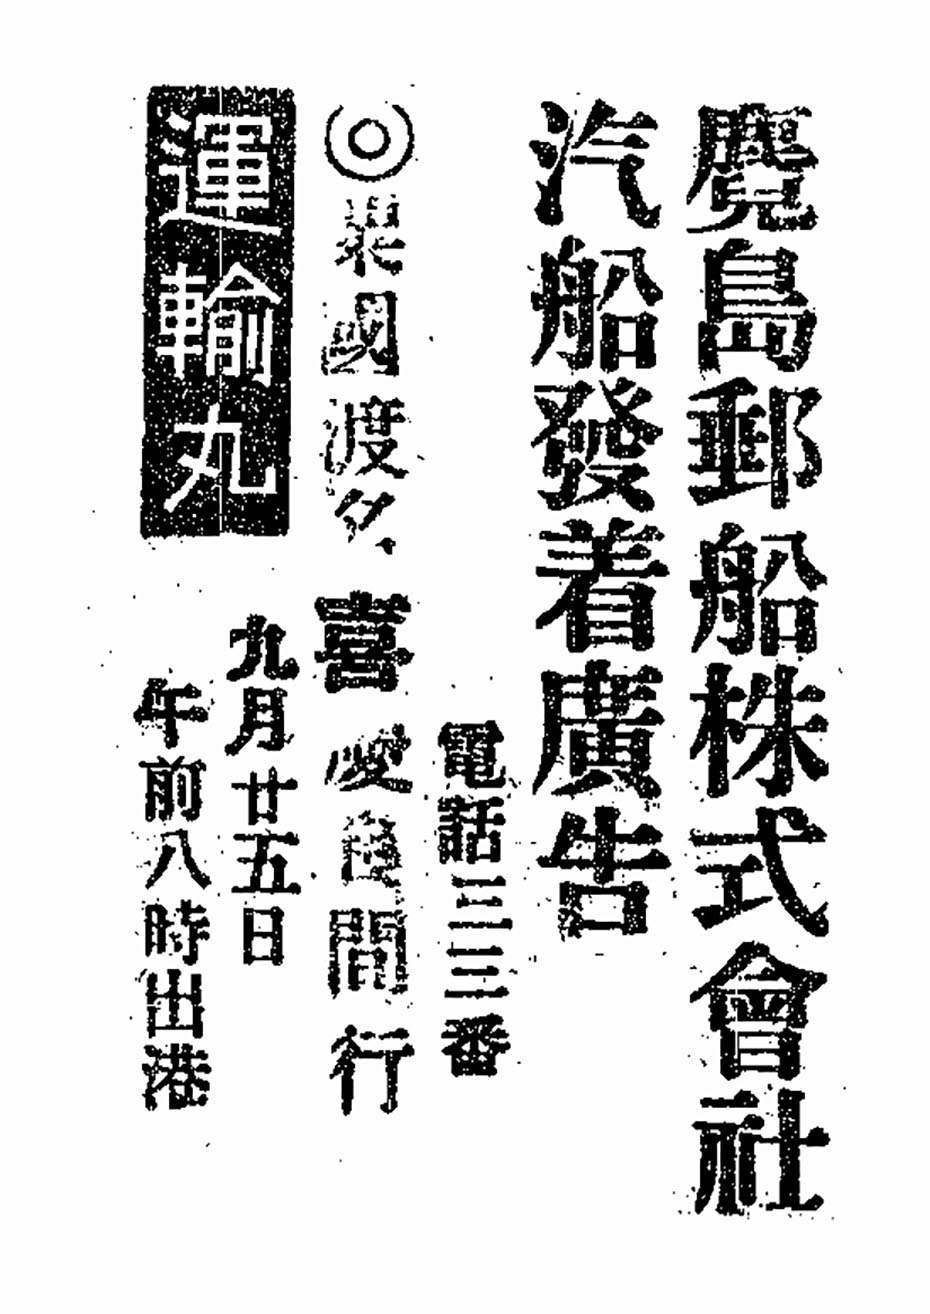 麑島郵船株式會社
汽船發着廣告
電話三三番
◎國渡喜間行
運輸丸
九月廿五日
午前八時出港